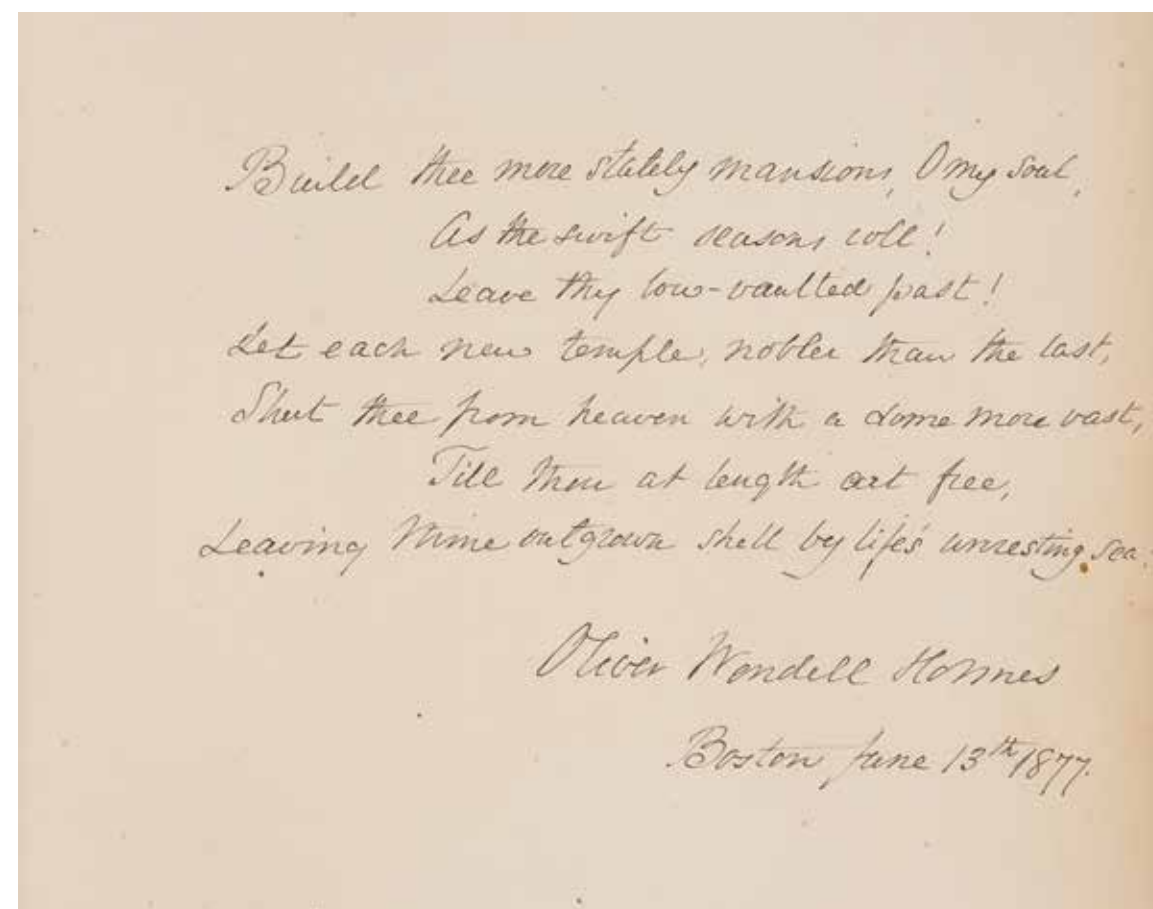 Build thee more stately mansions, O my soul,
As the swift seasons roll!
Leave thy low-vaulted past!
Let each new temple, nobler than the last,
Shut thee from heaven with a dome more vast,
Till thou at length art free,
Leaving thine outgrown shell by life's unresting sea.
Oliver Wendell Holmes
Boston June 13th 1877.